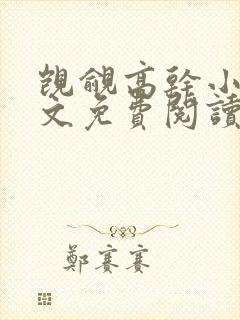 覬覦高幹小
文免費閱讀
鄭賽賽